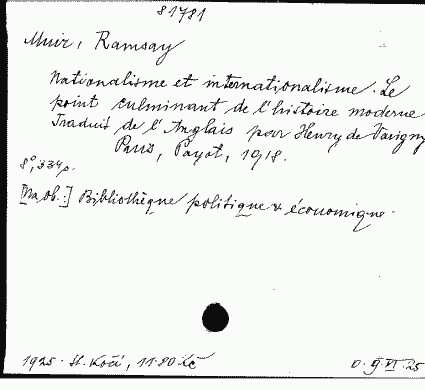 81781
Muir, Ramsay
Nationalisme et internationalisme. Le
point culminant de l'histoire moderne
Traduit de l'Anglais par Henry de Varigny
Paris, Payot, 1918.
8°, 334p.
[Na ob.:] Bibliothèque politique & économique.
1925. St. Kočí, 11.80 Kč
D. 9 VI 25